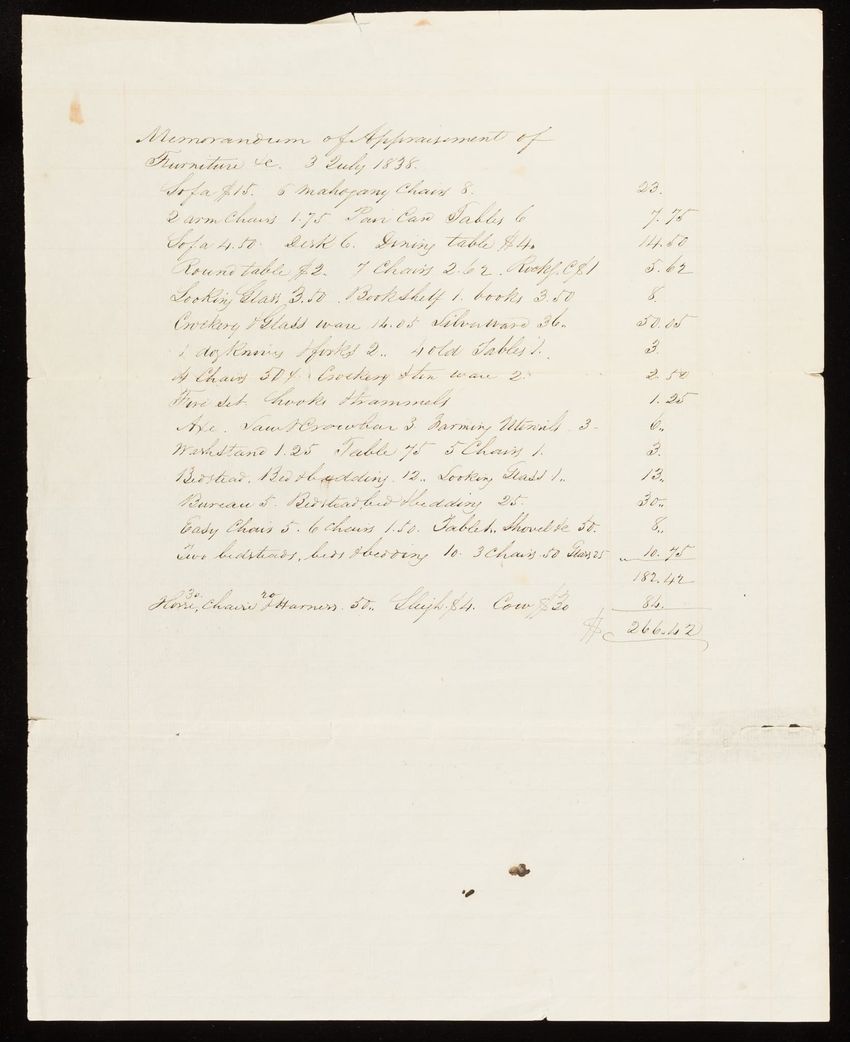 Memorandum of Appraisement of
Furniture &c. 3 July 1838.
Sofa $15. 6 Mahogany Chairs 8. 23.
2 arm Chairs 1.75 Pair Card Tables 6 7.75
Sofa 4.50. Desk 6. Dining table $4. 14.50
Round table $2. 7 Chairs 2.62. Rockg. C $1 5.62
Looking Glass 3.50. Bookshelf 1. books 3.50 8.
Crockery & Glass ware 14.05 Silverware 36.. 50.05
1 doz Knives & forks 2.. 4 old Tables 1. 3.
4 Chairs 50¢. Crockery & tin ware 2. 2.50
Fire Set. hooks & trammels 1.25
Axe. Saw & Crowbar 3 Farming Utensils 3- 6..
Washstand 1.25 Table 75 5 Chairs 1. 3.
Bedstead, Bed & bedding. 12.. Looking Glass 1.. 13..
Bureau 5. Bedstead, bed & bedding 25. 30..
Easy Chair 5. 6 chairs 1.50. Table 1.. Shovel &c 50. 8..
Two bedsteads, beds & bedding 10. 3 Chairs 50 Glass 25 " 10.75
182.42
30 20
Horse, Chaise & Harness. 50.. Sleigh $4. Cow $30 84.
$ 266.42